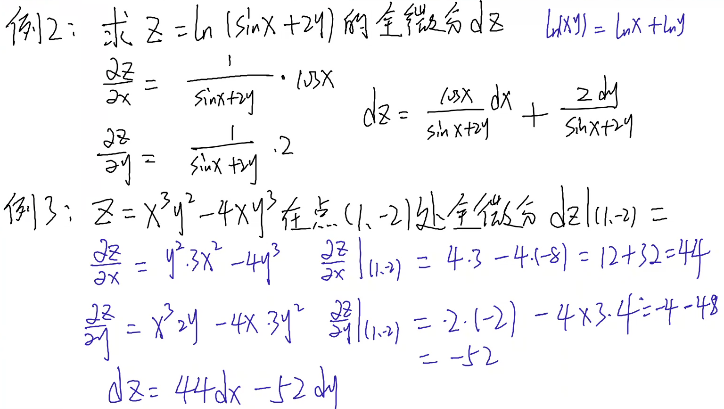 例2：求 z = ln(sinx+2y) 的全微分 dz   ln(xy) = lnx + lny
∂z/∂x = 1/(sinx+2y) · cosx
dz = cosx/(sinx+2y) dx + 2dy/(sinx+2y)
∂z/∂y = 1/(sinx+2y) · 2
例3：z = x³y² - 4xy³ 在点(1、-2)处全微分 dz|(1,-2) =
∂z/∂x = y²·3x² - 4y³   ∂z/∂x|(1,-2) = 4·3 - 4·(-8) = 12+32 = 44
∂z/∂y = x³2y - 4x·3y²   ∂z/∂y|(1,-2) = ·2·(-2) - 4×3·4 = -4-48
= -52
dz = 44dx - 52dy